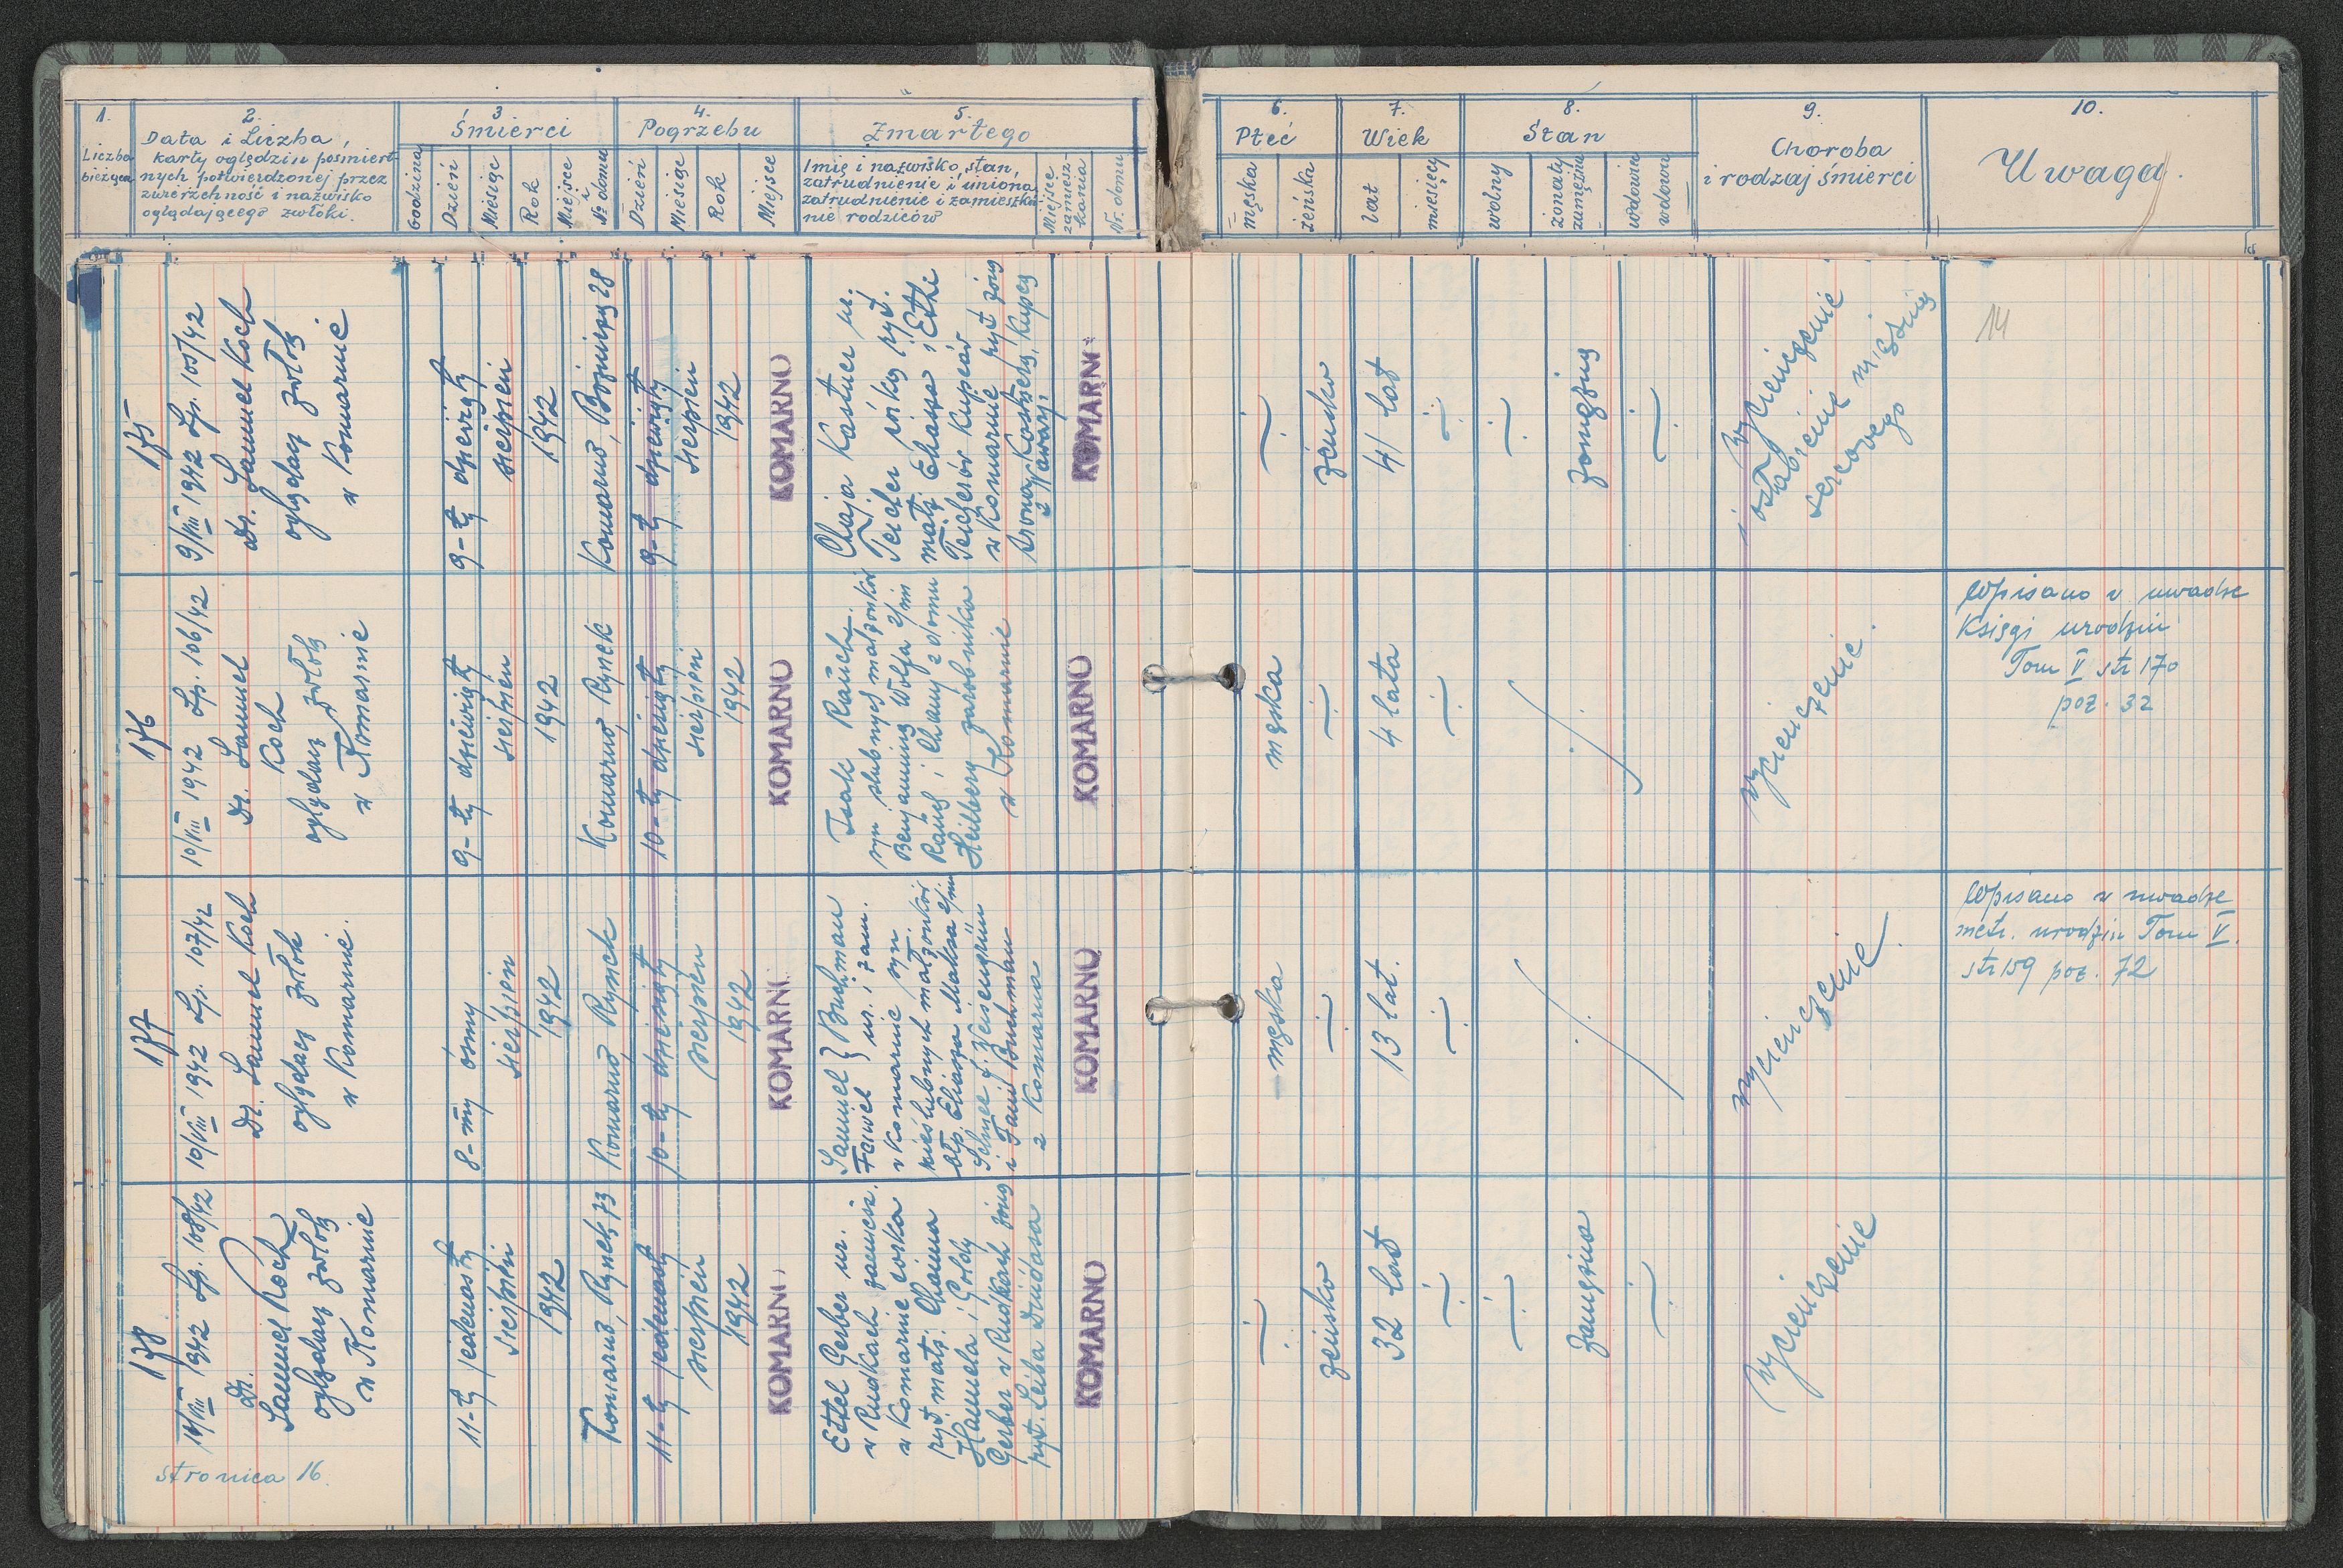 1.
Liczba
bieżąca
2.
Data i Liczba,
karty oględzin pośmiert-
nych potwierdzonej przez
zwierzchność i nazwisko
oglądającego zwłoki.
3
Śmierci
Godzina
Dzień
Miesiąc
Rok
Miejsce
i
№ domu
4.
Pogrzebu
Dzień
Miesiąc
Rok
Miejsce
5.
Zmarłego
Imię i nazwisko, stan,
zatrudnienie i
zatrudnienie i zamieszka
nie rodziców
Miejsce
zamiesz-
kania
Nr. domu
6.
Płeć
męska
żeńska
7.
Wiek
lat
miesięcy
8.
Stan
wolny
żonaty
zamężna
wdowiec
wdowa
9.
Choroba
i rodzaj śmierci
10.
Uwaga.
175
9/VIII 1942 Lp. 105/42
Dr. Samuel Koch
oglądacz zwłok
w Komarnie
9-ty dziewiąty
sierpień
1942
Komarno, 28
9-ty dziewiąty
sierpień
1942
KOMARNO
Chaja Kastner ur.
Teicher córka ryt.
małż. Eliasza i Etki
Teicherów kupców
w Komarnie ryt. żona
Arona Kastnera, kupca
z
KOMARN
żeńska
41 lat
zamężna
wycieńczenie
i osłabienie mięśnia
sercowego
14
176
10/VIII 1942 Lp. 106/42
Dr. Samuel
Koch
oglądacz zwłok
w Komarnie
9-ty dziewiąty
sierpień
1942
Komarno Rynek
10-ty dziesiąty
sierpień
1942
KOMARNO
Isak
syn ślubnych małżonków
Benjamina Wolfa
i Chany z domu
Heilberg zarobnika
w Komarnie
KOMARNO
męska
4 lata
wycieńczenie.
Wpisano w uwadze
Księgi urodzin
Tom V str 170
poz. 32
177
10/VIII 1942 Lp. 107/42
Dr. Samuel Koch
oglądacz zwłok
w Komarnie.
8-my ósmy
sierpień
1942
Komarno Rynek
10-ty dziesiąty
sierpień
1942
KOMARN
Samuel } Buchman
Faiwel } ur. i zam.
w Komarnie syn
nieślubnych małżonków
Eliasza
i Fani Buchman
z Komarna
KOMARNO
męska
13 lat.
wycieńczenie
Wpisano w uwadze
metr. urodzin Tom V.
str 159 poz. 72
178
11/VIII 1942 Lp. 108/42
Dr.
Samuel Koch
oglądacz zwłok
w Komarnie
11-ty jedenasty
sierpień
1942
Komarno, Rynek 73
11-ty jedenasty
sierpień
1942
KOMARN
Ettel Gerber ur.
w Rudkach zamiesz.
w Komarnie córka
ryt. małż. Chaima
i Goldy
Gerber w Rudkach żona
ryt. Leiba
KOMARNO
żeńska
32 lat
zamężna
wycieńczenie
stronica 16.